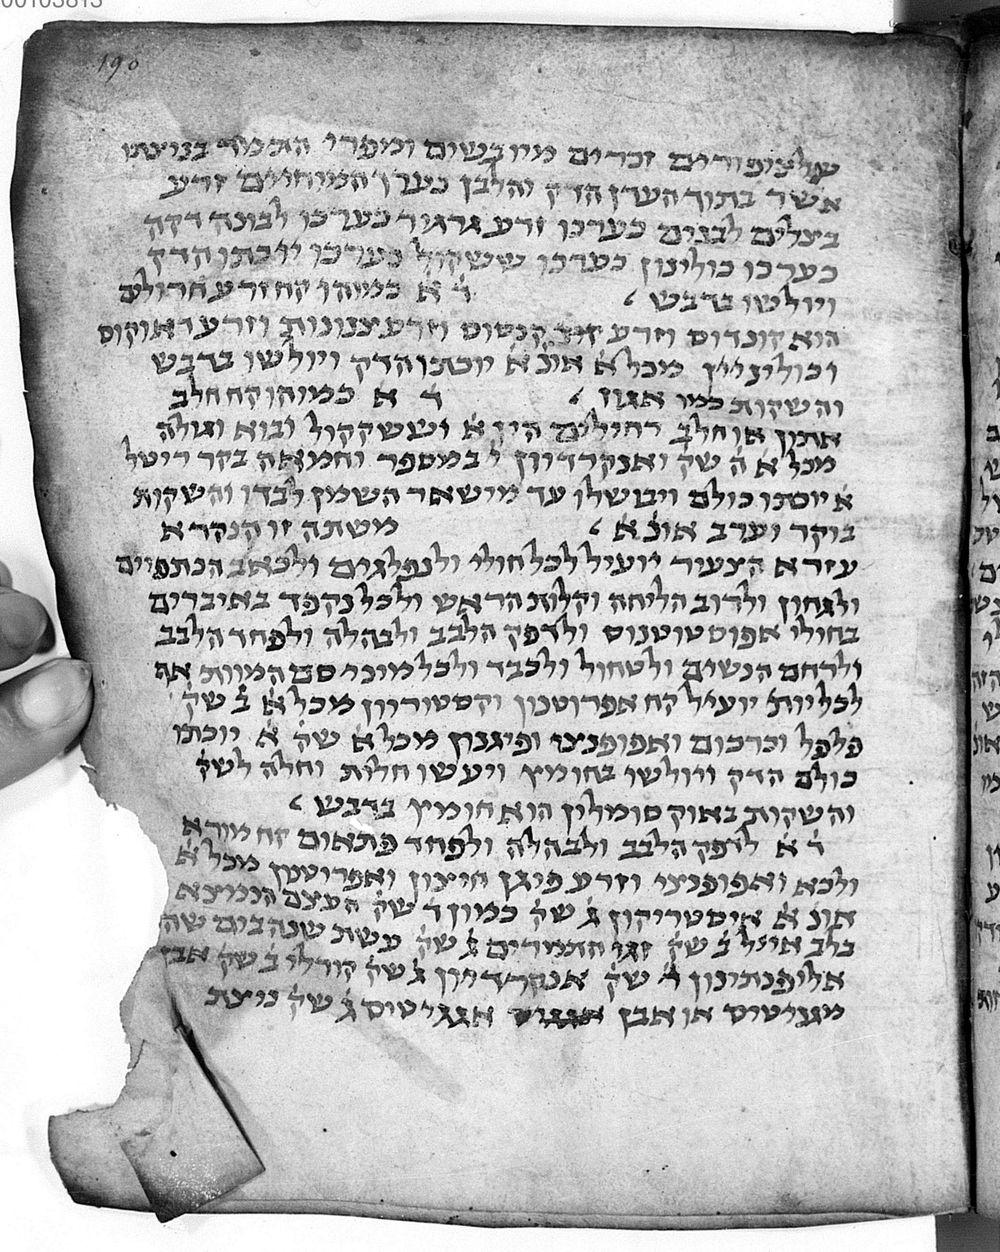 00103813
190
של ציפורים זכרים מיובשים ומפרי התמר בניצתו
אשר בתוך העדן הדק והלבן כערך המוחיים זרע
בצלים לבנים כערכו זרע גרגיר כערכו לבונה דקה
כערכו כולינון כערכו ששקול כערכו יוכתו הדק
ויולשו בדבש ר א כמוהו קח זרע חרולים
הוא קונדוס וזרע קנסוס וזרע צנונות וזרע ראוקוס
וכולינון מכל א אונ א יוכתו הדק ויולשו בדבש
והשקות כמו אגוז ר א כמוהו קח חלב
אתון או חלב רחילים הין א וששקקול ובוא וגולה
מכל א ה שק ואנקרדיון ל במספר וחמאה בקר ריטל
א יוסכו כולם ויבושלו עד מישאר השמן לבדו והשקות
בוקר וערב אונ א משתה זו הנקרא
עזרא הצעיר יועיל לכל חולי ולנפלגים ולכאב הכתפיים
ולגחון ולרוב הליחה וקלות הראש ולכל נקפד באיברים
בחולי אפוסטוטנוס ולדפק הלבב ולבהלה ולפחד הלבב
ולרחם הנשים ולטחול ולכבד ולכל מוכר סם המוות אף
לכליות יועיל קח אפרוטנון וקסטוריון מכל א ב שק
פלפל וכרכום ואפופנצי ופיגנון מכל א שק א יוכתו
כולם הדק ויולשו בחומץ ויעשו חלות וחלה לשק
והשקות באוקסומלין הוא חומץ בדבש
ר א לדפק הלבב ולבהלה ולפחד פתאום קח מורא
ולכא ואפופנצי וזרע פיגן חיצון ואפרוטנון מכל א
אונ א איסטריקון ג שק כמון ר שק העצם הנמצא
בלב איל ב שק זגי התמרים ג שק עשת שנהבים שה
אליפנתינון ר שק אנקרדיון ג שק קורלי ב שק אבן
מגניטיס או אבן אגגיטיס ג שק ניצת